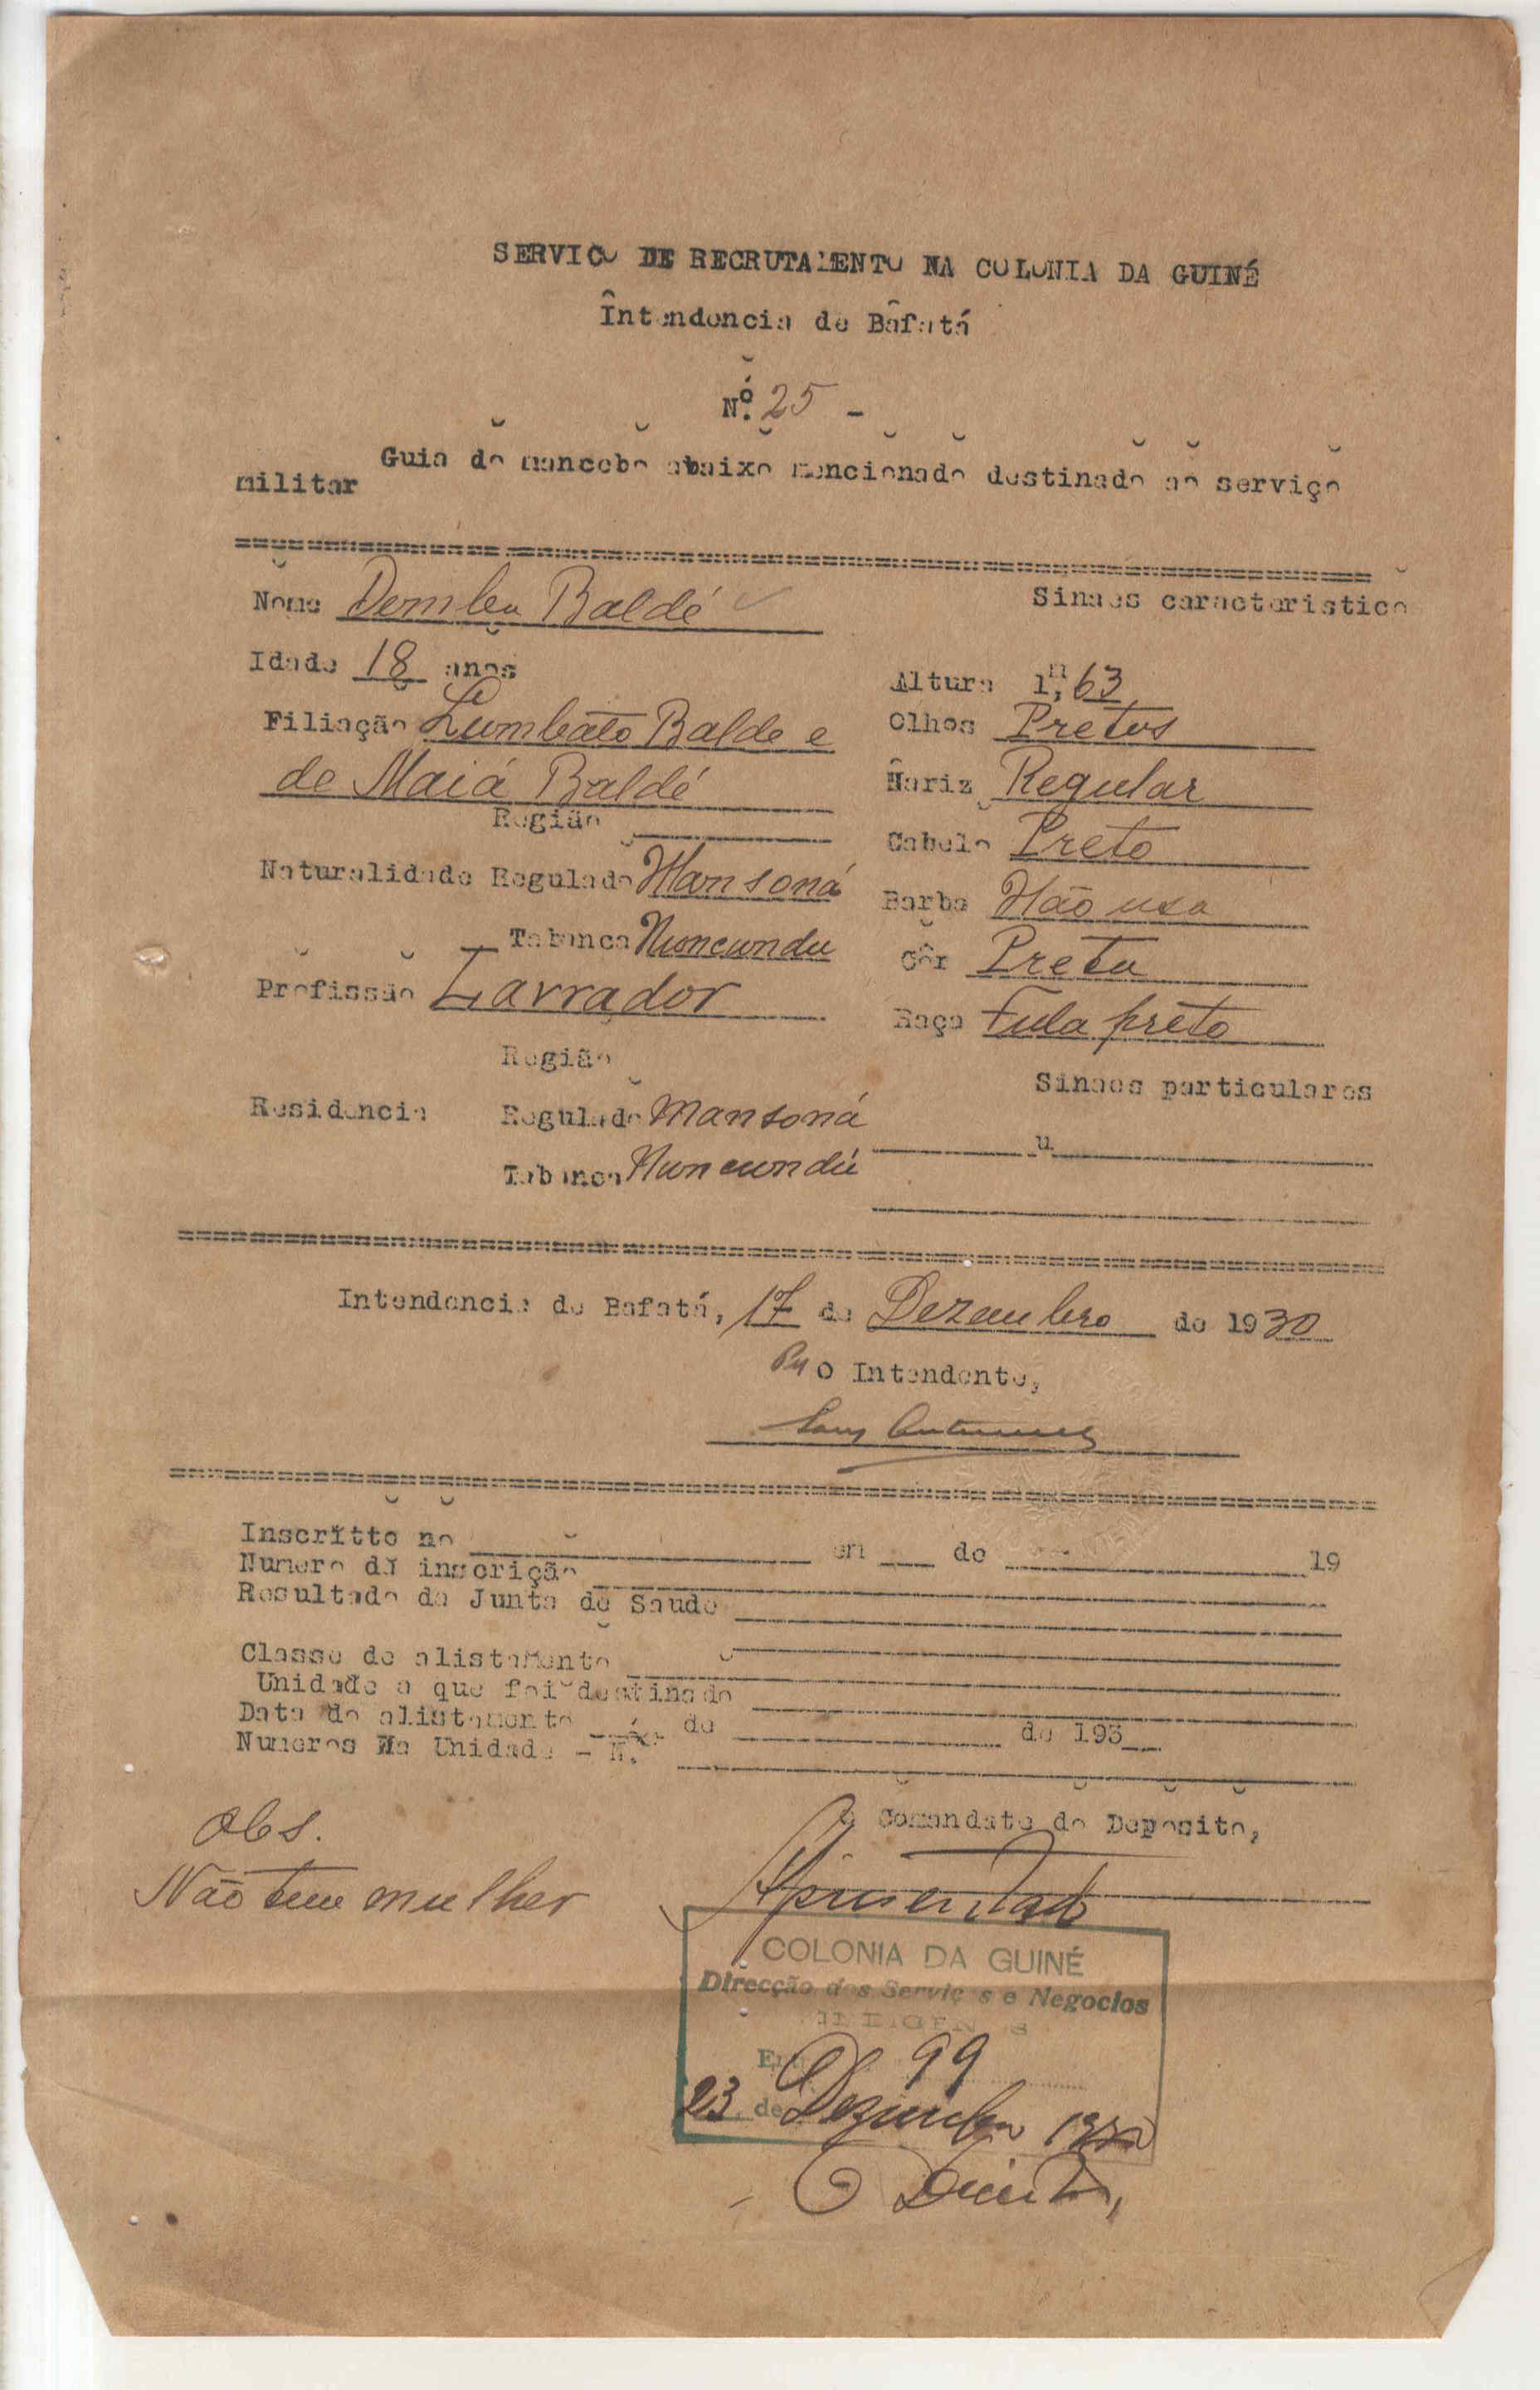 SERVICO DE RECRUTAMENTO NA COLONIA DA GUINÉ
Intendencia de Bafatá
Nº. 25 -
Guia do mancebo abaixo mencionado destinado ao serviço
militar
Nome Demba Baldé
Sinaes caracteristico
Idade 18 anos
Altura 1,m63
Filiação Lumbato Balde e
de Maiá Baldé
Olhos Pretos
Nariz Regular
Região
Cabelo Preto
Naturalidade Regulado Mansoná
Barba Não usa
Tabanca Nuncundu
Côr Preta
Profissão Lavrador
Raça Fula preto
Região
Sinaes particulares
Residencia Regulado Mansoná
Tabanca Nuncundú
Intendencia de Bafatá, 17 de Dezembro de 1930
O Intendente,
Inscritto no em de 19
Numero da inscrição
Resultado da Junta de Saude
Classe de alistamento
Unidade a que foi destinado
Data do alistamento de de 193
Numeros Na Unidade - N.
O Comandate do Deposito,
Obs.
Não tem mulher
Apresentado
COLONIA DA GUINÉ
Direcção dos Serviços e Negocios
INDIGENAS
Ent 99
23 de Dezembro 1930
O Director,